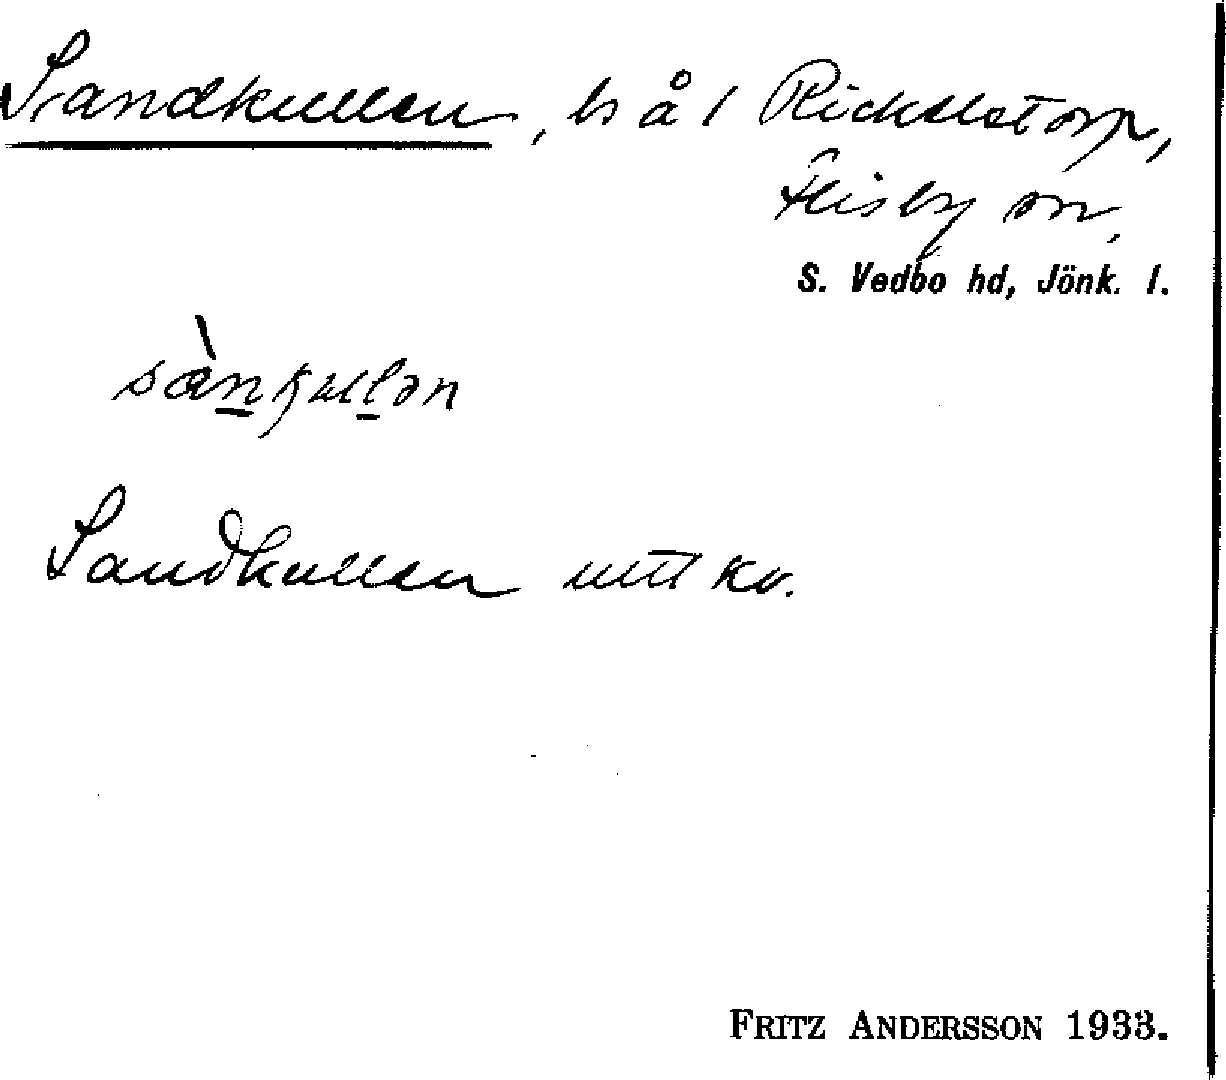 Sandkullen, ls å 1 Rickelstorp,
Flisby sn,
S. Vedbo hd, Jönk. l.
sànkulən
Sandkullen utt kv.
FRITZ ANDERSSON 1933.